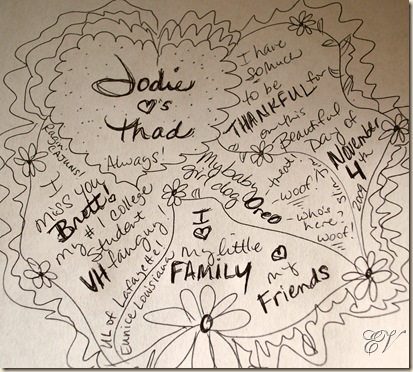 Jodie
♡'s
Thad
Always!
I have
so much
to be
THANKFUL for
on this
Beautiful
Day of
November
4th
2009
Ragin Cajuns!
I
miss you
Brett!
my #1 college
student
VH fang guy!
UL of Lafayette!
Eunice Louisiana
My baby
girl dog
Oreo
- woof!
- who's
here?
woof!
I
♡
my little
FAMILY
♡
my
Friends
EV